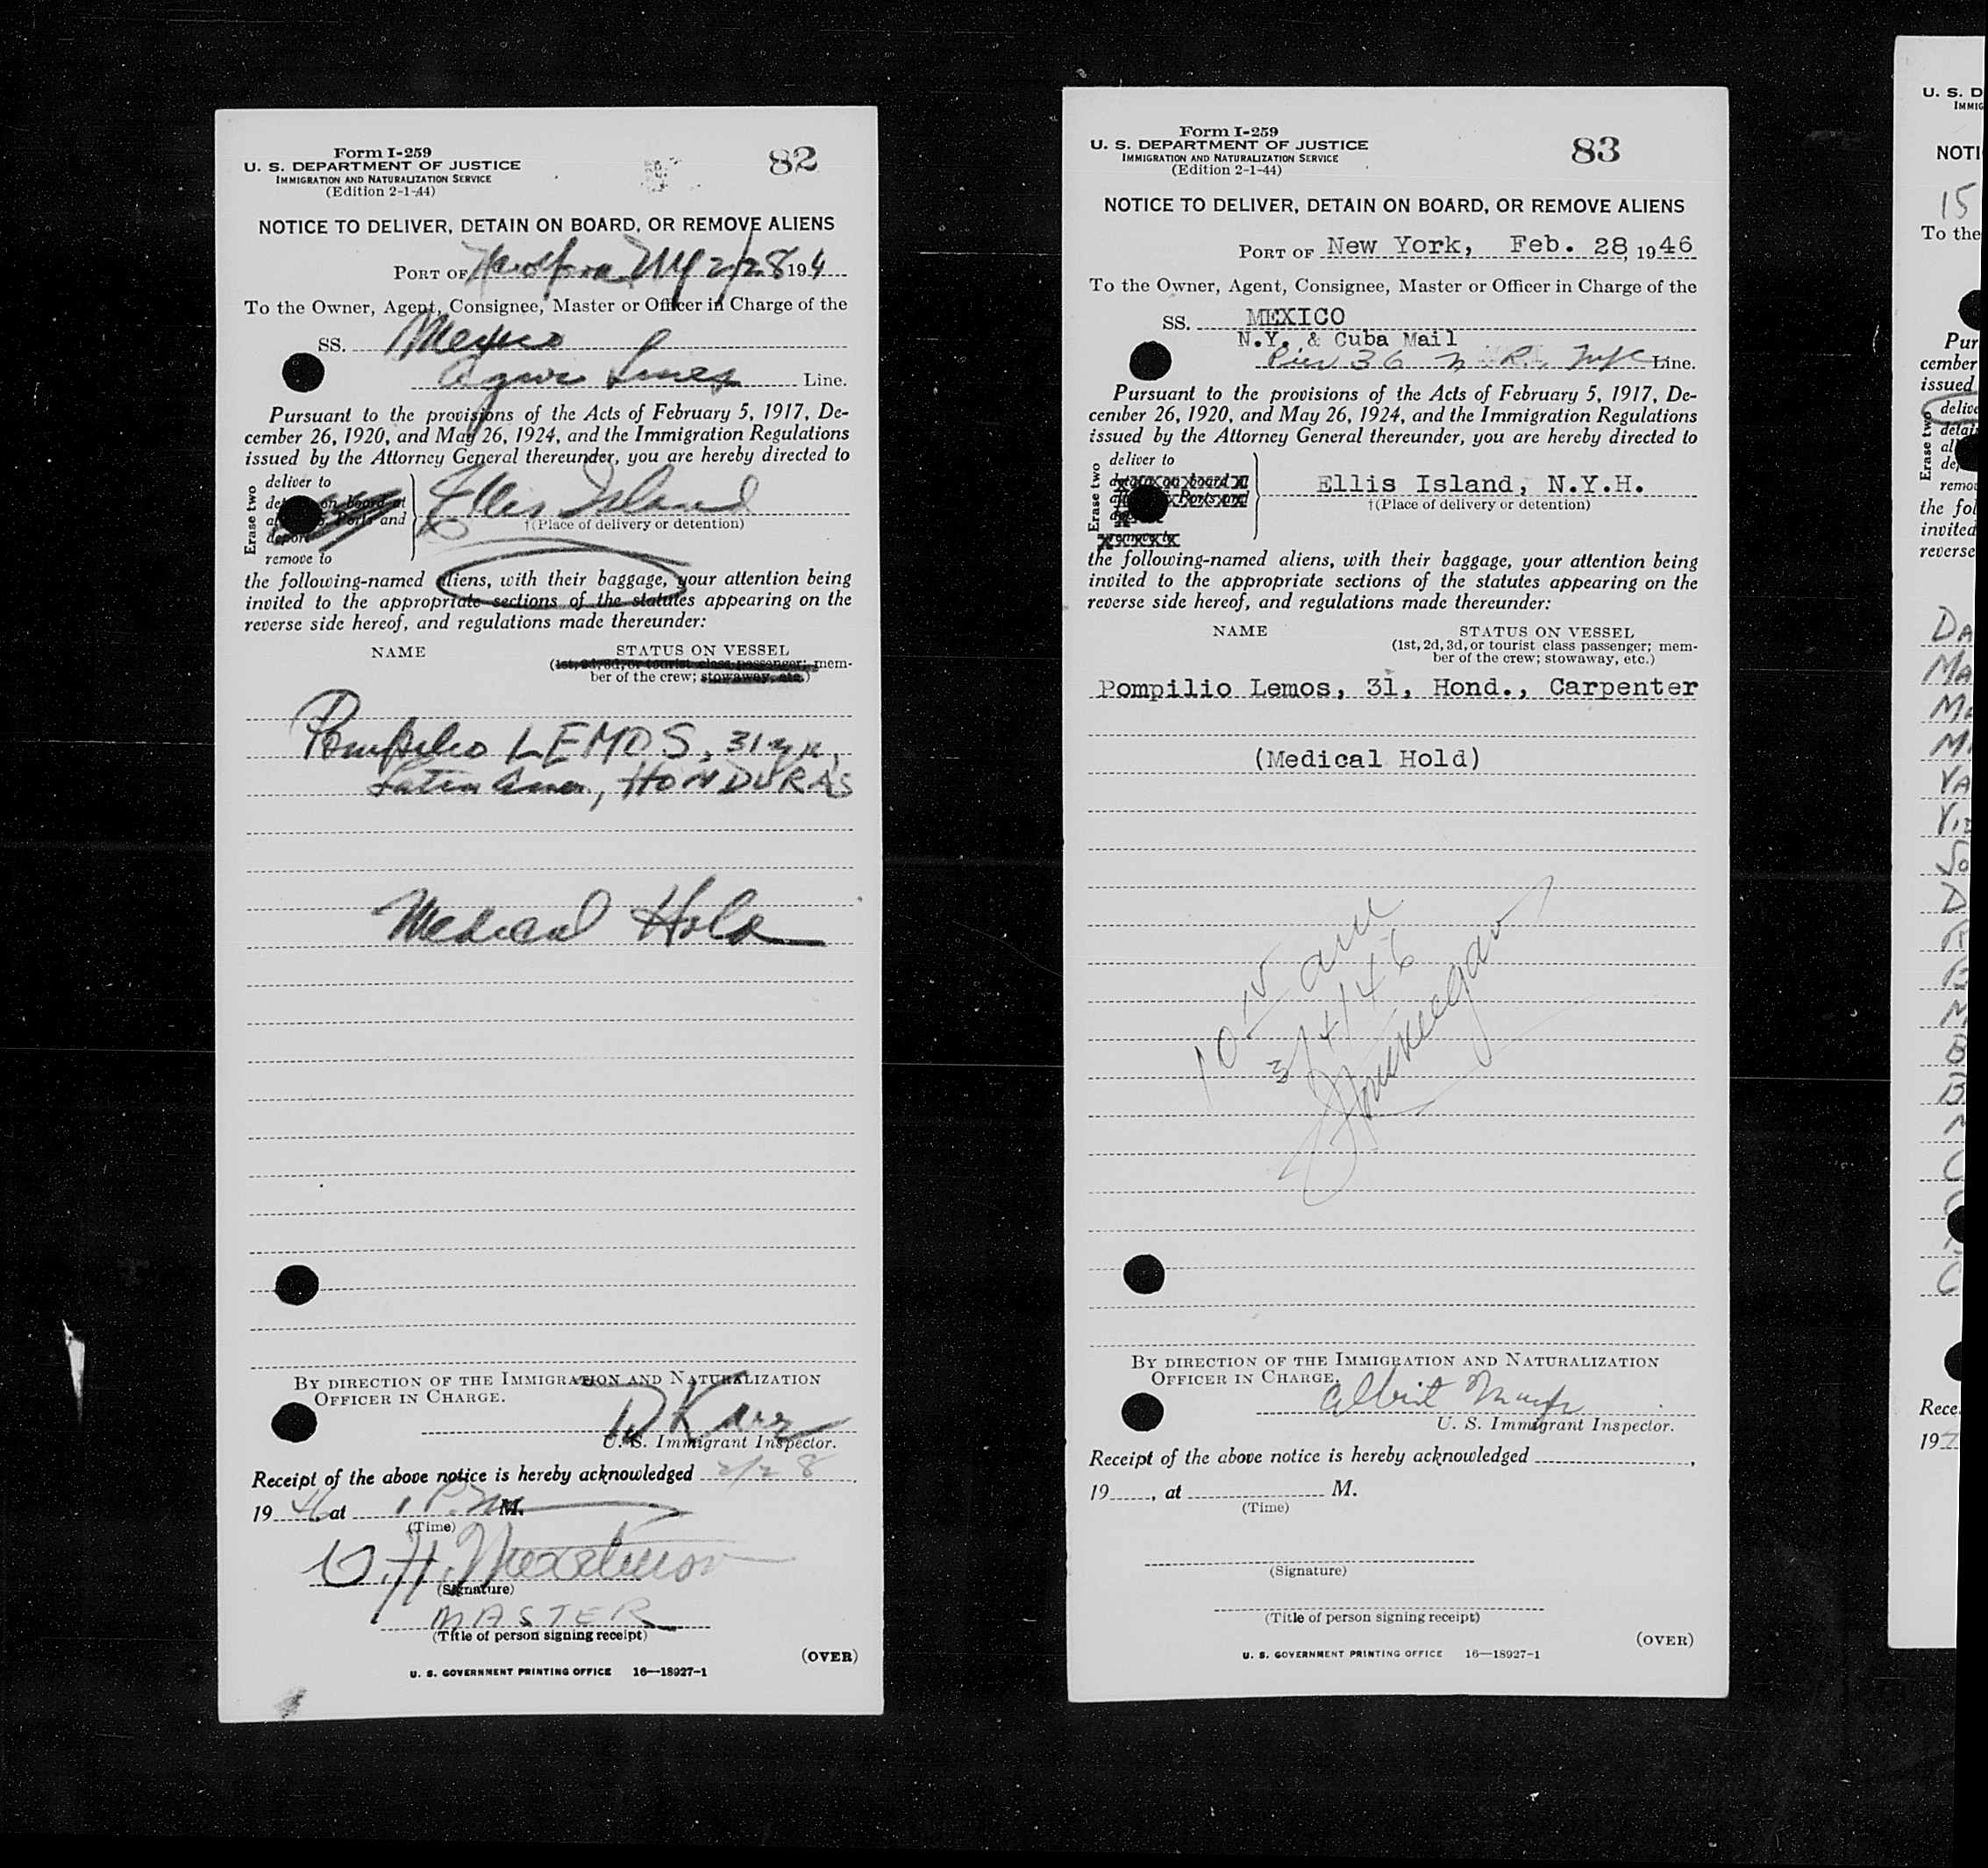 Form I-259
U. S. DEPARTMENT OF JUSTICE
IMMIGRATION AND NATURALIZATION SERVICE
(Edition 2-1-44)
82
NOTICE TO DELIVER, DETAIN ON BOARD, OR REMOVE ALIENS
PORT OF NY 2/28 194
To the Owner, Agent, Consignee, Master or Officer in Charge of the
SS. Mexico
Lines Line.
Pursuant to the provisions of the Acts of February 5, 1917, De-
cember 26, 1920, and May 26, 1924, and the Immigration Regulations
issued by the Attorney General thereunder, you are hereby directed to
Erase two
deliver to
on board at
Ports and
deport
remove to
Ellis Island
†(Place of delivery or detention)
the following-named aliens, with their baggage, your attention being
invited to the appropriate sections of the statutes appearing on the
reverse side hereof, and regulations made thereunder:
NAME
STATUS ON VESSEL
(1st, 2d, 3d, or tourist class passenger; mem-
ber of the crew; stowaway, etc.)
Pompilio LEMOS, 31 yr,
Latin Amer, HONDURAS
Medical Hold
BY DIRECTION OF THE IMMIGRATION AND NATURALIZATION
OFFICER IN CHARGE.
U. S. Immigrant Inspector.
Receipt of the above notice is hereby acknowledged 2/28,
1946, at 1 P.M. M.
(Time)
(Signature)
MASTER
(Title of person signing receipt)
(OVER)
U. S. GOVERNMENT PRINTING OFFICE 16—18927-1
Form I-259
U. S. DEPARTMENT OF JUSTICE
IMMIGRATION AND NATURALIZATION SERVICE
(Edition 2-1-44)
83
NOTICE TO DELIVER, DETAIN ON BOARD, OR REMOVE ALIENS
PORT OF New York, Feb. 28, 1946
To the Owner, Agent, Consignee, Master or Officer in Charge of the
SS. MEXICO
N.Y. & Cuba Mail
Pier 36 N. R., NYC Line.
Pursuant to the provisions of the Acts of February 5, 1917, De-
cember 26, 1920, and May 26, 1924, and the Immigration Regulations
issued by the Attorney General thereunder, you are hereby directed to
Erase two
deliver to
detain on board at
Ports and
remove to
Ellis Island, N.Y.H.
†(Place of delivery or detention)
the following-named aliens, with their baggage, your attention being
invited to the appropriate sections of the statutes appearing on the
reverse side hereof, and regulations made thereunder:
NAME
STATUS ON VESSEL
(1st, 2d, 3d, or tourist class passenger; mem-
ber of the crew; stowaway, etc.)
Pompilio Lemos, 31, Hond., Carpenter
(Medical Hold)
10 15 am
3/4/46
BY DIRECTION OF THE IMMIGRATION AND NATURALIZATION
OFFICER IN CHARGE.
Albert
U. S. Immigrant Inspector.
Receipt of the above notice is hereby acknowledged ,
19 , at M.
(Time)
(Signature)
(Title of person signing receipt)
(OVER)
U. S. GOVERNMENT PRINTING OFFICE 16—18927-1
U. S. D
IMMIG
NOTI
15
To the
Pur
cember
issued
Erase two
delive
detai
al
de
remo
the fol
invited
reverse
DA
MA
VA
So
D
Rece
19